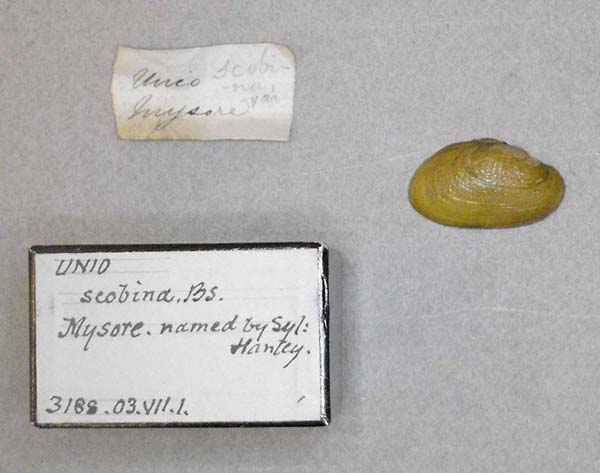 Unio scobi-
-na, var
Mysore
UNIO
scobina, Bs.
Mysore. named by Syl:
Hanley.
3188.03.VII.1.